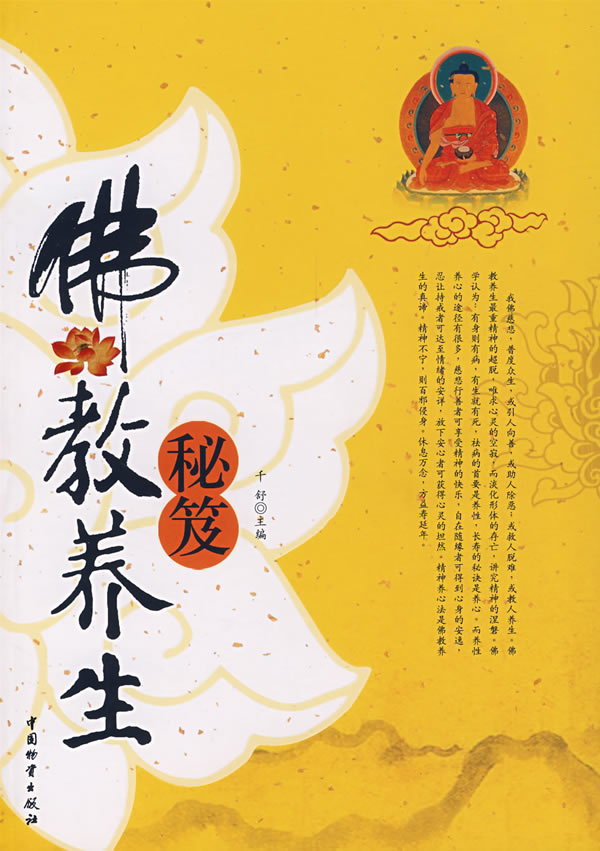 佛教养生
秘笈
千舒◎主编
我佛慈悲，普度众生，或引人向善，或助人除恶；或救人脱难，或教人养生。佛
教养生最重精神的超脱，唯求心灵的空寂，而淡化形体的存亡，讲究精神的涅磐。佛
学认为：有身则有病，有生就有死，祛病的首要是养性，长寿的秘诀是养心。而养性
养心的途径有很多，慈悲行善者可享受精神的快乐，自在随缘者可得到心身的安逸，
忍让持戒者可达至情绪的安详，放下安心者可获得心灵的坦然。精神养心法是佛教养
生的真谛。精神不宁，则百邪侵身。休息万念，方益寿延年。
中国物资出版社